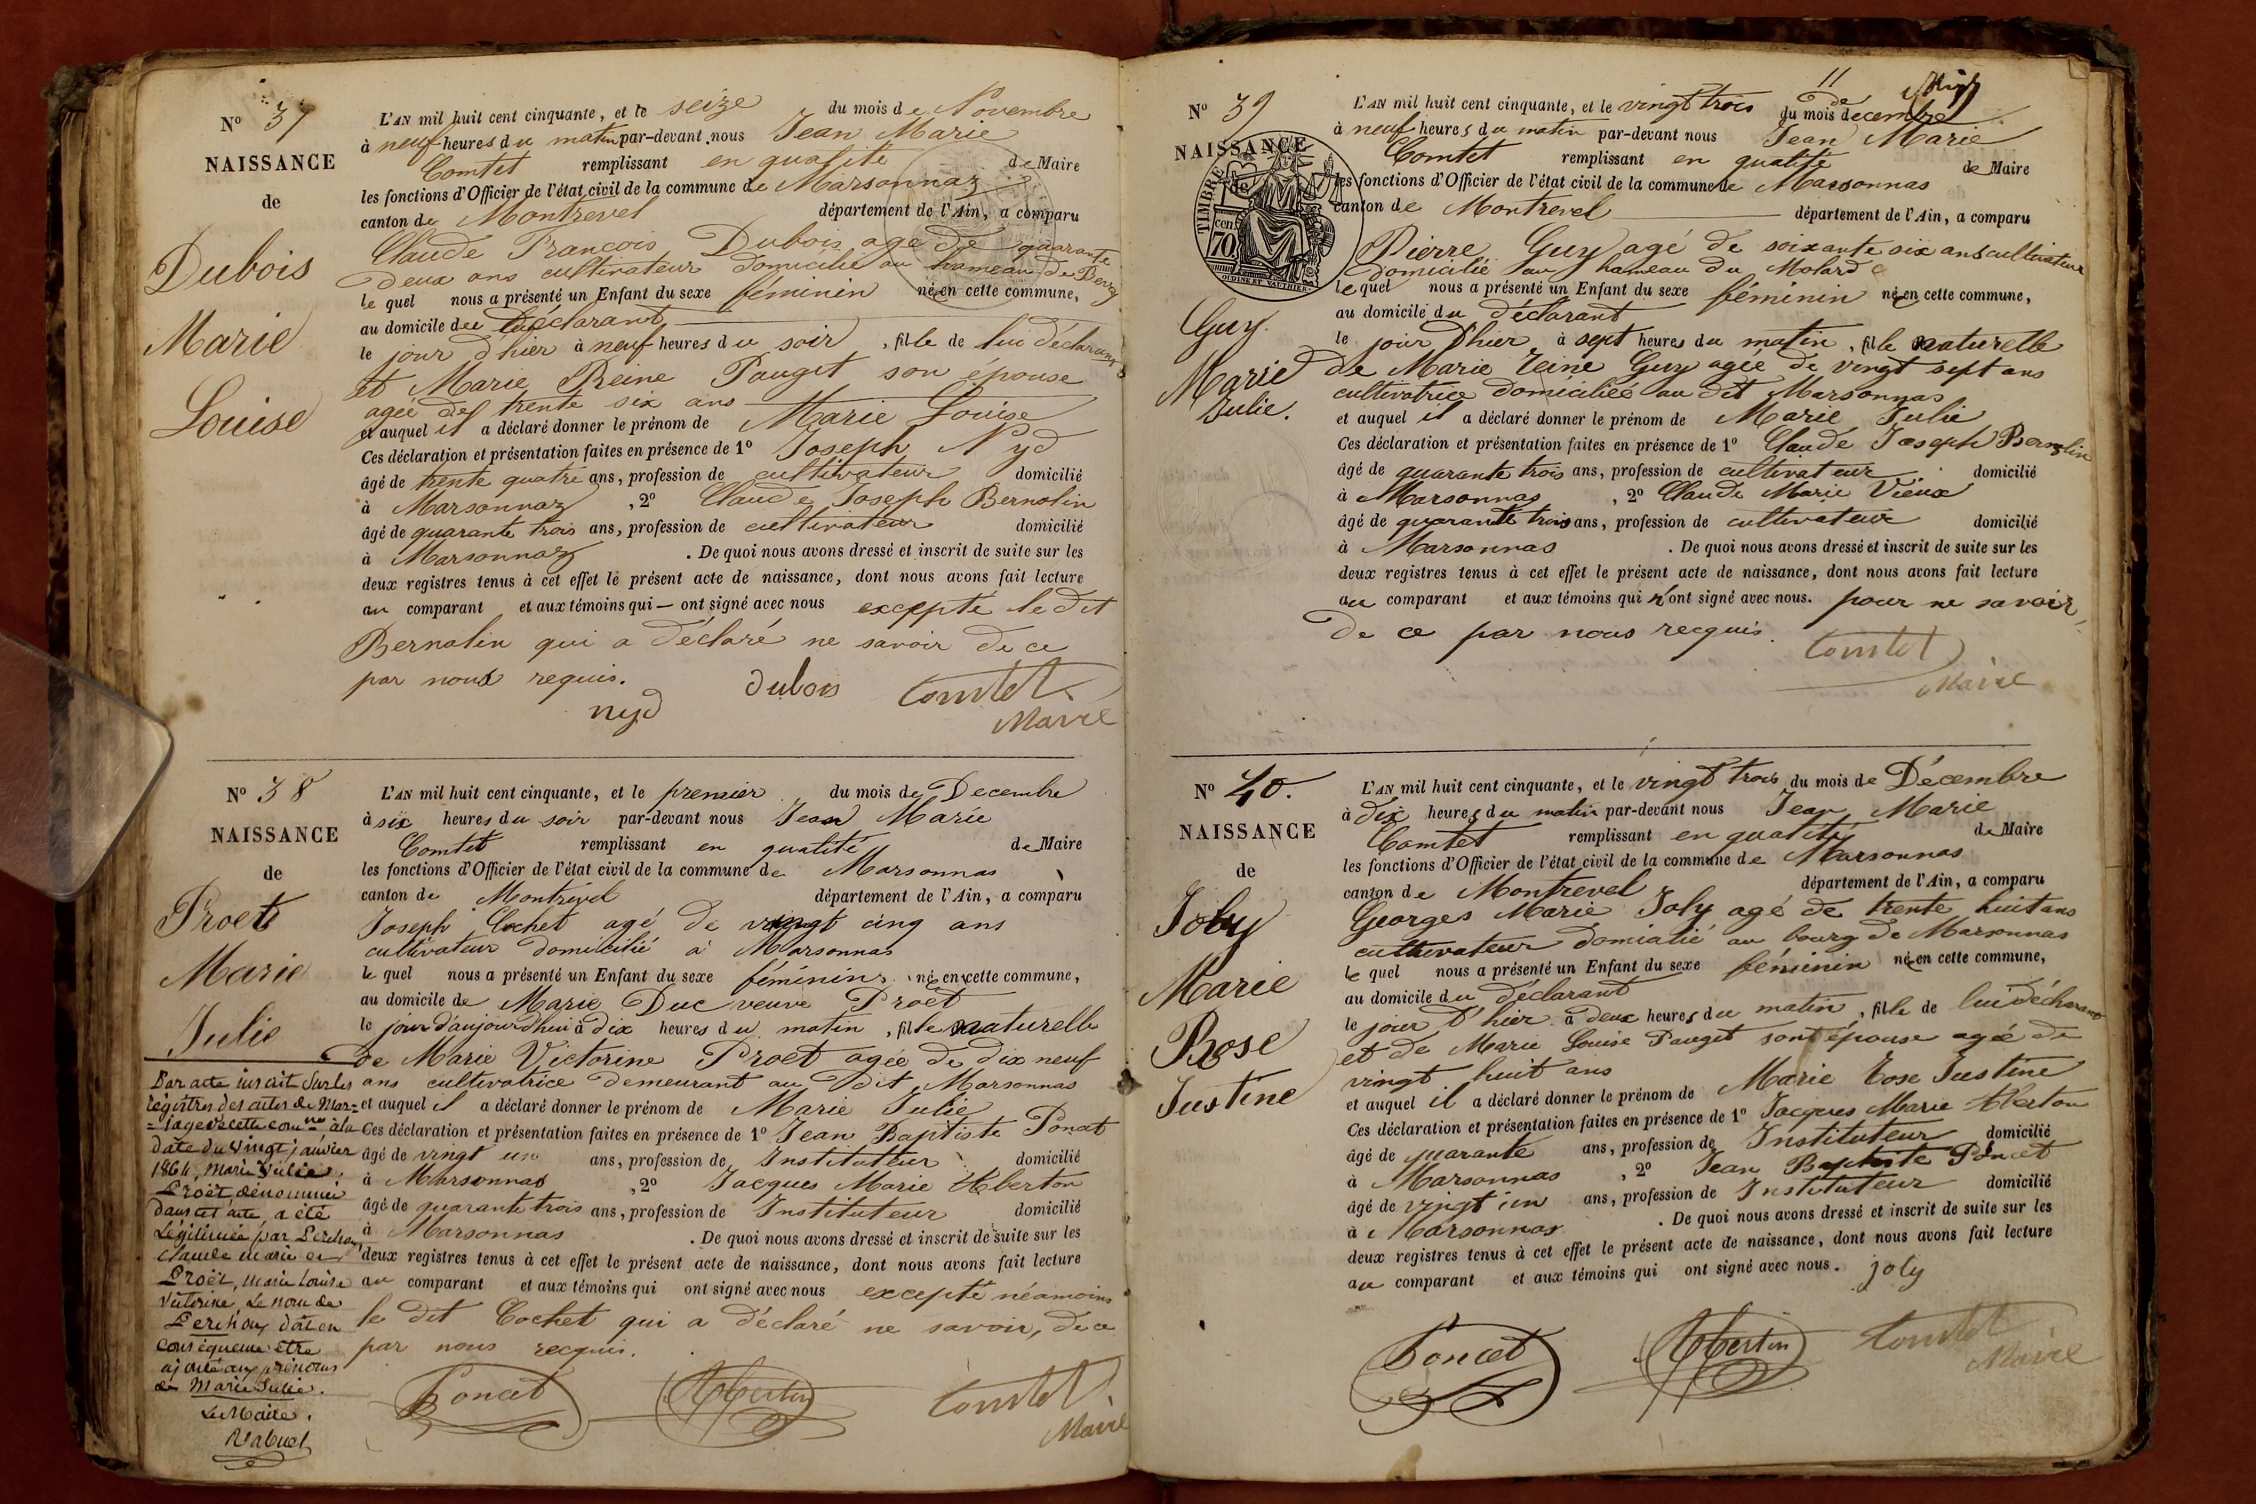 N° 37
NAISSANCE
de
Dubois
Marie
Louise
L'AN mil huit cent cinquante, et le seize du mois de Novembre
à neuf heures du matin par-devant nous Jean Marie
Comtet remplissant en qualité de Maire
les fonctions d'Officier de l'état civil de la commune de Marsonnaz
canton de Montrevel département de l'Ain, a comparu
Claude François Dubois agé de quarante
deux ans cultivateur domicilié au hameau de
le quel nous a présenté un Enfant du sexe féminin né en cette commune,
au domicile du déclarant
le jour d'hier à neuf heures du soir, fille de lui déclarant
et Marie Reine Pauget son épouse
agée de trente six ans
et auquel il a déclaré donner le prénom de Marie Louise
Ces déclaration et présentation faites en présence de 1° Joseph Nyd
âgé de trente quatre ans, profession de cultivateur domicilié
à Marsonnaz, 2° Claude Joseph Bernolin
âgé de quarante trois ans, profession de cultivateur domicilié
à Marsonnaz. De quoi nous avons dressé et inscrit de suite sur les
deux registres tenus à cet effet le présent acte de naissance, dont nous avons fait lecture
au comparant et aux témoins qui — ont signé avec nous excepté le dit
Bernolin qui a déclaré ne savoir de ce
par nous requis.
nyd dubois Comtet
Maire
N° 38
NAISSANCE
de
Proet
Marie
Julie
L'AN mil huit cent cinquante, et le premier du mois de Decembre
à six heures du soir par-devant nous Jean Marie
Comtet remplissant en qualité de Maire
les fonctions d'Officier de l'état civil de la commune de Marsonnas
canton de Montrevel département de l'Ain, a comparu
Joseph Cochet agé de vingt cinq ans
cultivateur domicilié à Marsonnas
le quel nous a présenté un Enfant du sexe féminin né en cette commune,
au domicile de Marie Duc veuve Proet
le jour d'aujourd'hui à dix heures du matin, fille naturelle
de Marie Victorine Proet agée de dix neuf
ans cultivatrice demeurant au dit Marsonnas
et auquel il a déclaré donner le prénom de Marie Julie
Ces déclaration et présentation faites en présence de 1° Jean Baptiste Poncet
âgé de vingt un ans, profession de Instituteur domicilié
à Marsonnas, 2° Jacques Marie Alberton
âgé de quarante trois ans, profession de Instituteur domicilié
à Marsonnas. De quoi nous avons dressé et inscrit de suite sur les
deux registres tenus à cet effet le présent acte de naissance, dont nous avons fait lecture
au comparant et aux témoins qui ont signé avec nous excepté néamoins
le dit Cochet qui a déclaré ne savoir, de ce
par nous recquis.
Poncet Comtet
Maire
Par acte inscrit sur les
registres des actes de Mar=
=iage de cette comne à la
date du vingt janvier
1864, Marie Julie
Proët, dénommée
dans cet acte a été
Légitimée par
Claude Marie et
Proët, Marie Louise
Victorine, Le nom de
doit en
conséquence être
ajouté aux prénoms
de Marie Julie.
Le Maire.
N° 39
NAISSANCE
de
TIMBRE
70 cen
OUDINE ET VAUTHIER
Guy
Marie
Julie.
11
L'AN mil huit cent cinquante, et le vingt trois du mois de décembre
à neuf heures du matin par-devant nous Jean Marie
Comtet remplissant en qualité de Maire
les fonctions d'Officier de l'état civil de la commune de Marsonnas
canton de Montrevel département de l'Ain, a comparu
Pierre Guy agé de soixante six ans cultivateur
domicilié au hameau du Molard
le quel nous a présenté un Enfant du sexe féminin né en cette commune,
au domicile du déclarant
le jour d'hier à sept heures du matin, fille naturelle
de Marie Reine Guy agée de vingt sept ans
cultivatrice domiciliée au dit Marsonnas
et auquel il a déclaré donner le prénom de Marie Julie
Ces déclaration et présentation faites en présence de 1° Claude Joseph Bernolin
âgé de quarante trois ans, profession de cultivateur domicilié
à Marsonnas, 2° Claude Marie Vieux
âgé de quarante trois ans, profession de cultivateur domicilié
à Marsonnas. De quoi nous avons dressé et inscrit de suite sur les
deux registres tenus à cet effet le présent acte de naissance, dont nous avons fait lecture
au comparant et aux témoins qui n'ont signé avec nous. pour ne savoir,
de ce par nous recquis.
Comtet
Maire
N° 40.
NAISSANCE
de
Joly
Marie
Rose
Justine
L'AN mil huit cent cinquante, et le vingt trois du mois de Décembre
à dix heures du matin par-devant nous Jean Marie
Comtet remplissant en qualité de Maire
les fonctions d'Officier de l'état civil de la commune de Marsonnas
canton de Montrevel département de l'Ain, a comparu
Georges Marie Joly agé de trente huit ans
cultivateur domicilié au bourg de Marsonnas
le quel nous a présenté un Enfant du sexe féminin né en cette commune,
au domicile du déclarant
le jour d'hier à deux heures du matin, fille de lui déclarant
et de Marie Louise Pauget son épouse agée de
vingt huit ans
et auquel il a déclaré donner le prénom de Marie Rose Justine
Ces déclaration et présentation faites en présence de 1° Jacques Marie Alberton
âgé de quarante ans, profession de Instituteur domicilié
à Marsonnas, 2° Jean Baptiste Poncet
âgé de vingt un ans, profession de Instituteur domicilié
à Marsonnas. De quoi nous avons dressé et inscrit de suite sur les
deux registres tenus à cet effet le présent acte de naissance, dont nous avons fait lecture
au comparant et aux témoins qui ont signé avec nous. joly
Poncet Comtet
Maire